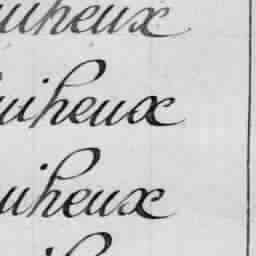 uiheux
uiheux
uiheux